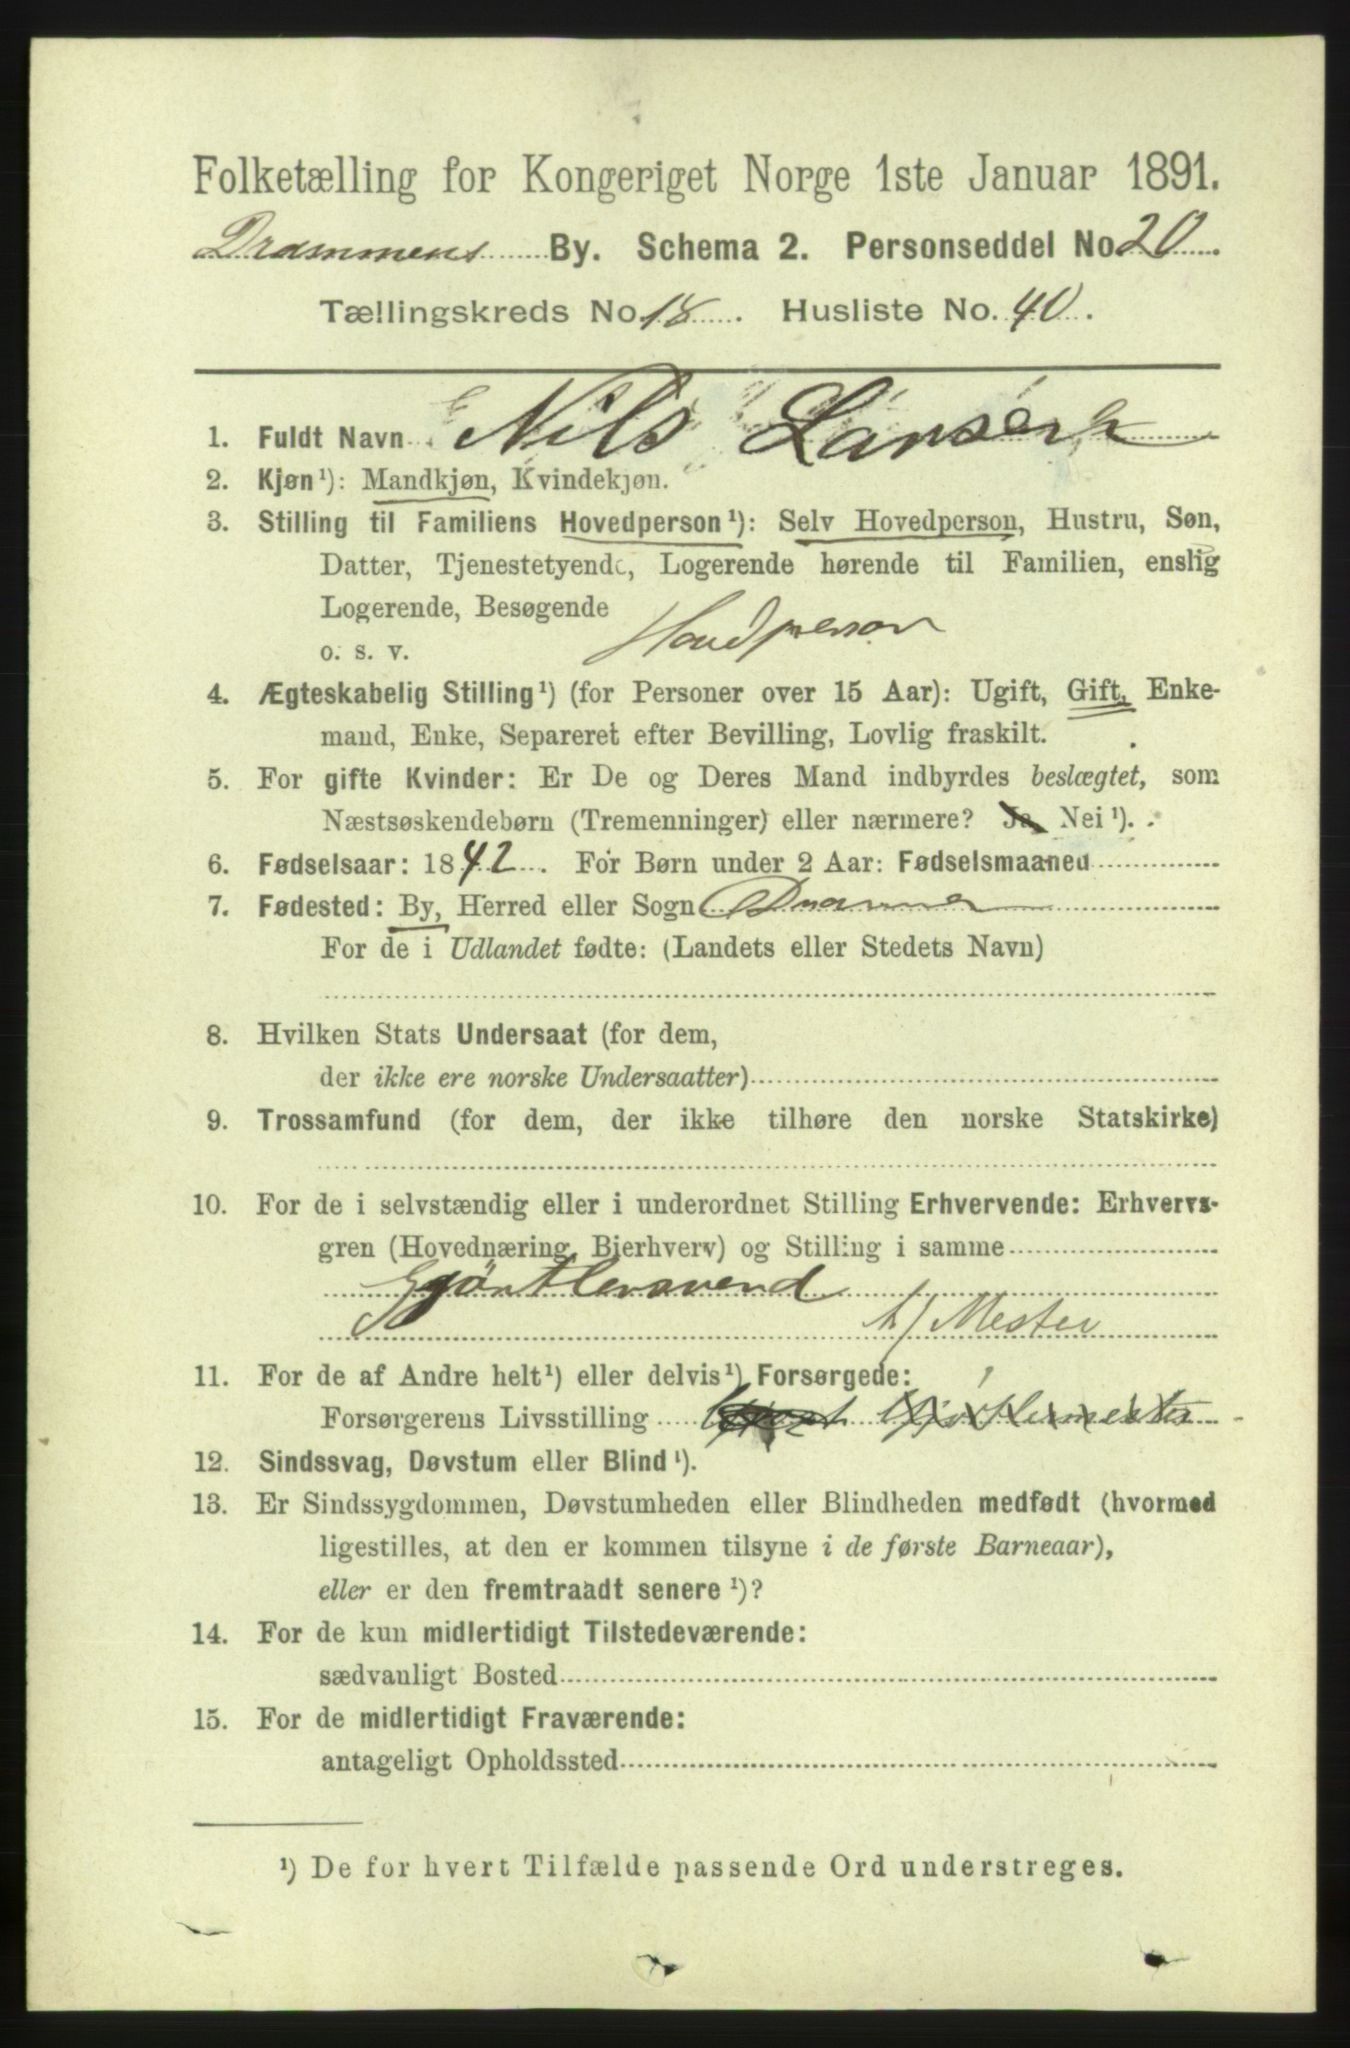 Folketælling for Kongeriget Norge 1ste Januar 1891.
Drammens By. Schema 2. Personseddel No 20
Tællingskreds No 18. Husliste No. 40.
1. Fuldt Navn Nils Larsen
2. Kjøn¹): Mandkjøn, Kvindekjøn.
3. Stilling til Familiens Hovedperson¹): Selv Hovedperson, Hustru, Søn,
Datter, Tjenestetyende, Logerende hørende til Familien, enslig
Logerende, Besøgende
o. s. v. Hovedperson
4. Ægteskabelig Stilling¹) (for Personer over 15 Aar): Ugift, Gift, Enke-
mand, Enke, Separeret efter Bevilling, Lovlig fraskilt.
5. For gifte Kvinder: Er De og Deres Mand indbyrdes beslægtet, som
Næstsøskendebørn (Tremenninger) eller nærmere? Ja, Nei¹).
6. Fødselsaar: 1842. For Børn under 2 Aar: Fødselsmaaned
7. Fødested: By, Herred eller Sogn Drammen
For de i Udlandet fødte: (Landets eller Stedets Navn)
8. Hvilken Stats Undersaat (for dem,
der ikke ere norske Undersaatter)
9. Trossamfund (for dem, der ikke tilhøre den norske Statskirke)
10. For de i selvstændig eller i underordnet Stilling Erhvervende: Erhvervs-
gren (Hovednæring, Bierhverv) og Stilling i samme
Gjørtlersvend
h/ Mester
11. For de af Andre helt¹) eller delvis¹) Forsørgede:
Forsørgerens Livsstilling Gjørtlermester
12. Sindssvag, Døvstum eller Blind¹).
13. Er Sindssygdommen, Døvstumheden eller Blindheden medfødt (hvormed
ligestilles, at den er kommen tilsyne i de første Barneaar),
eller er den fremtraadt senere¹)?
14. For de kun midlertidigt Tilstedeværende:
sædvanligt Bosted
15. For de midlertidigt Fraværende:
antageligt Opholdssted
¹) De for hvert Tilfælde passende Ord understreges.